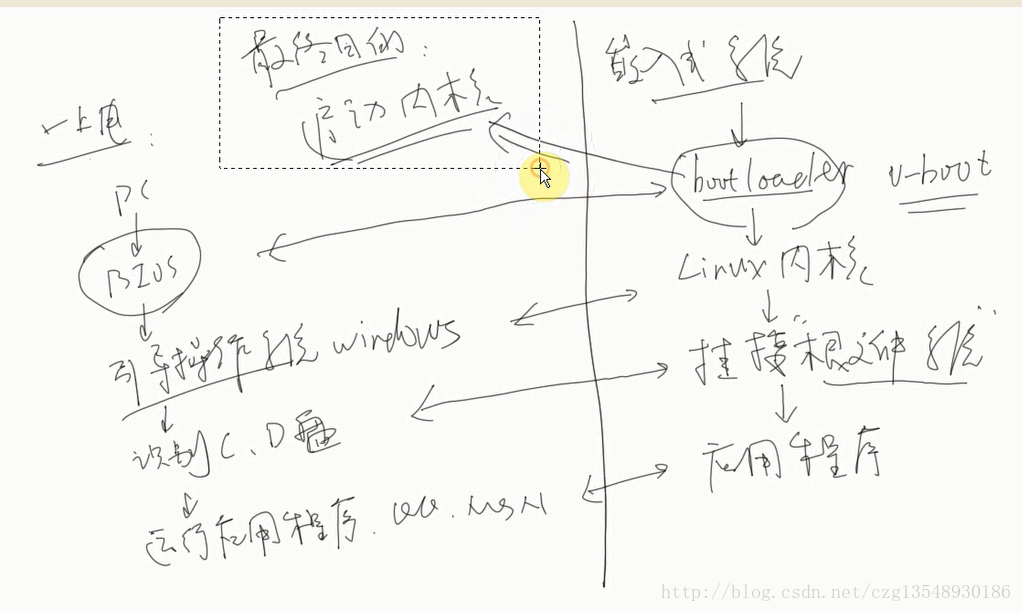 最终目的：
启动内核
一上电：
PC
BIOS
引导操作系统 windows
识别C、D盘
运行应用程序. QQ. MSN
嵌入式系统
bootloader
u-boot
Linux 内核
挂接“根文件系统”
应用程序
http://blog.csdn.net/czg13548930186